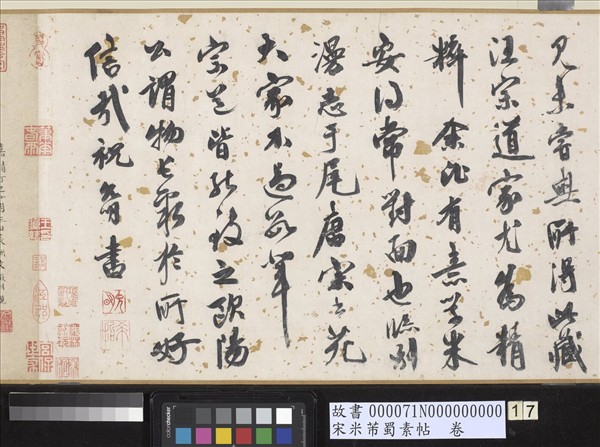 見未嘗無所得此藏
汪宗道家尤為精
粹余比有意學米
安得常對面也臨別
漫志于尾唐宋
大家不過數
宗道皆能致之歐陽
公謂物聚於所好
信哉祝允明書
故書 000071N000000000 17
宋米芾蜀素帖 卷